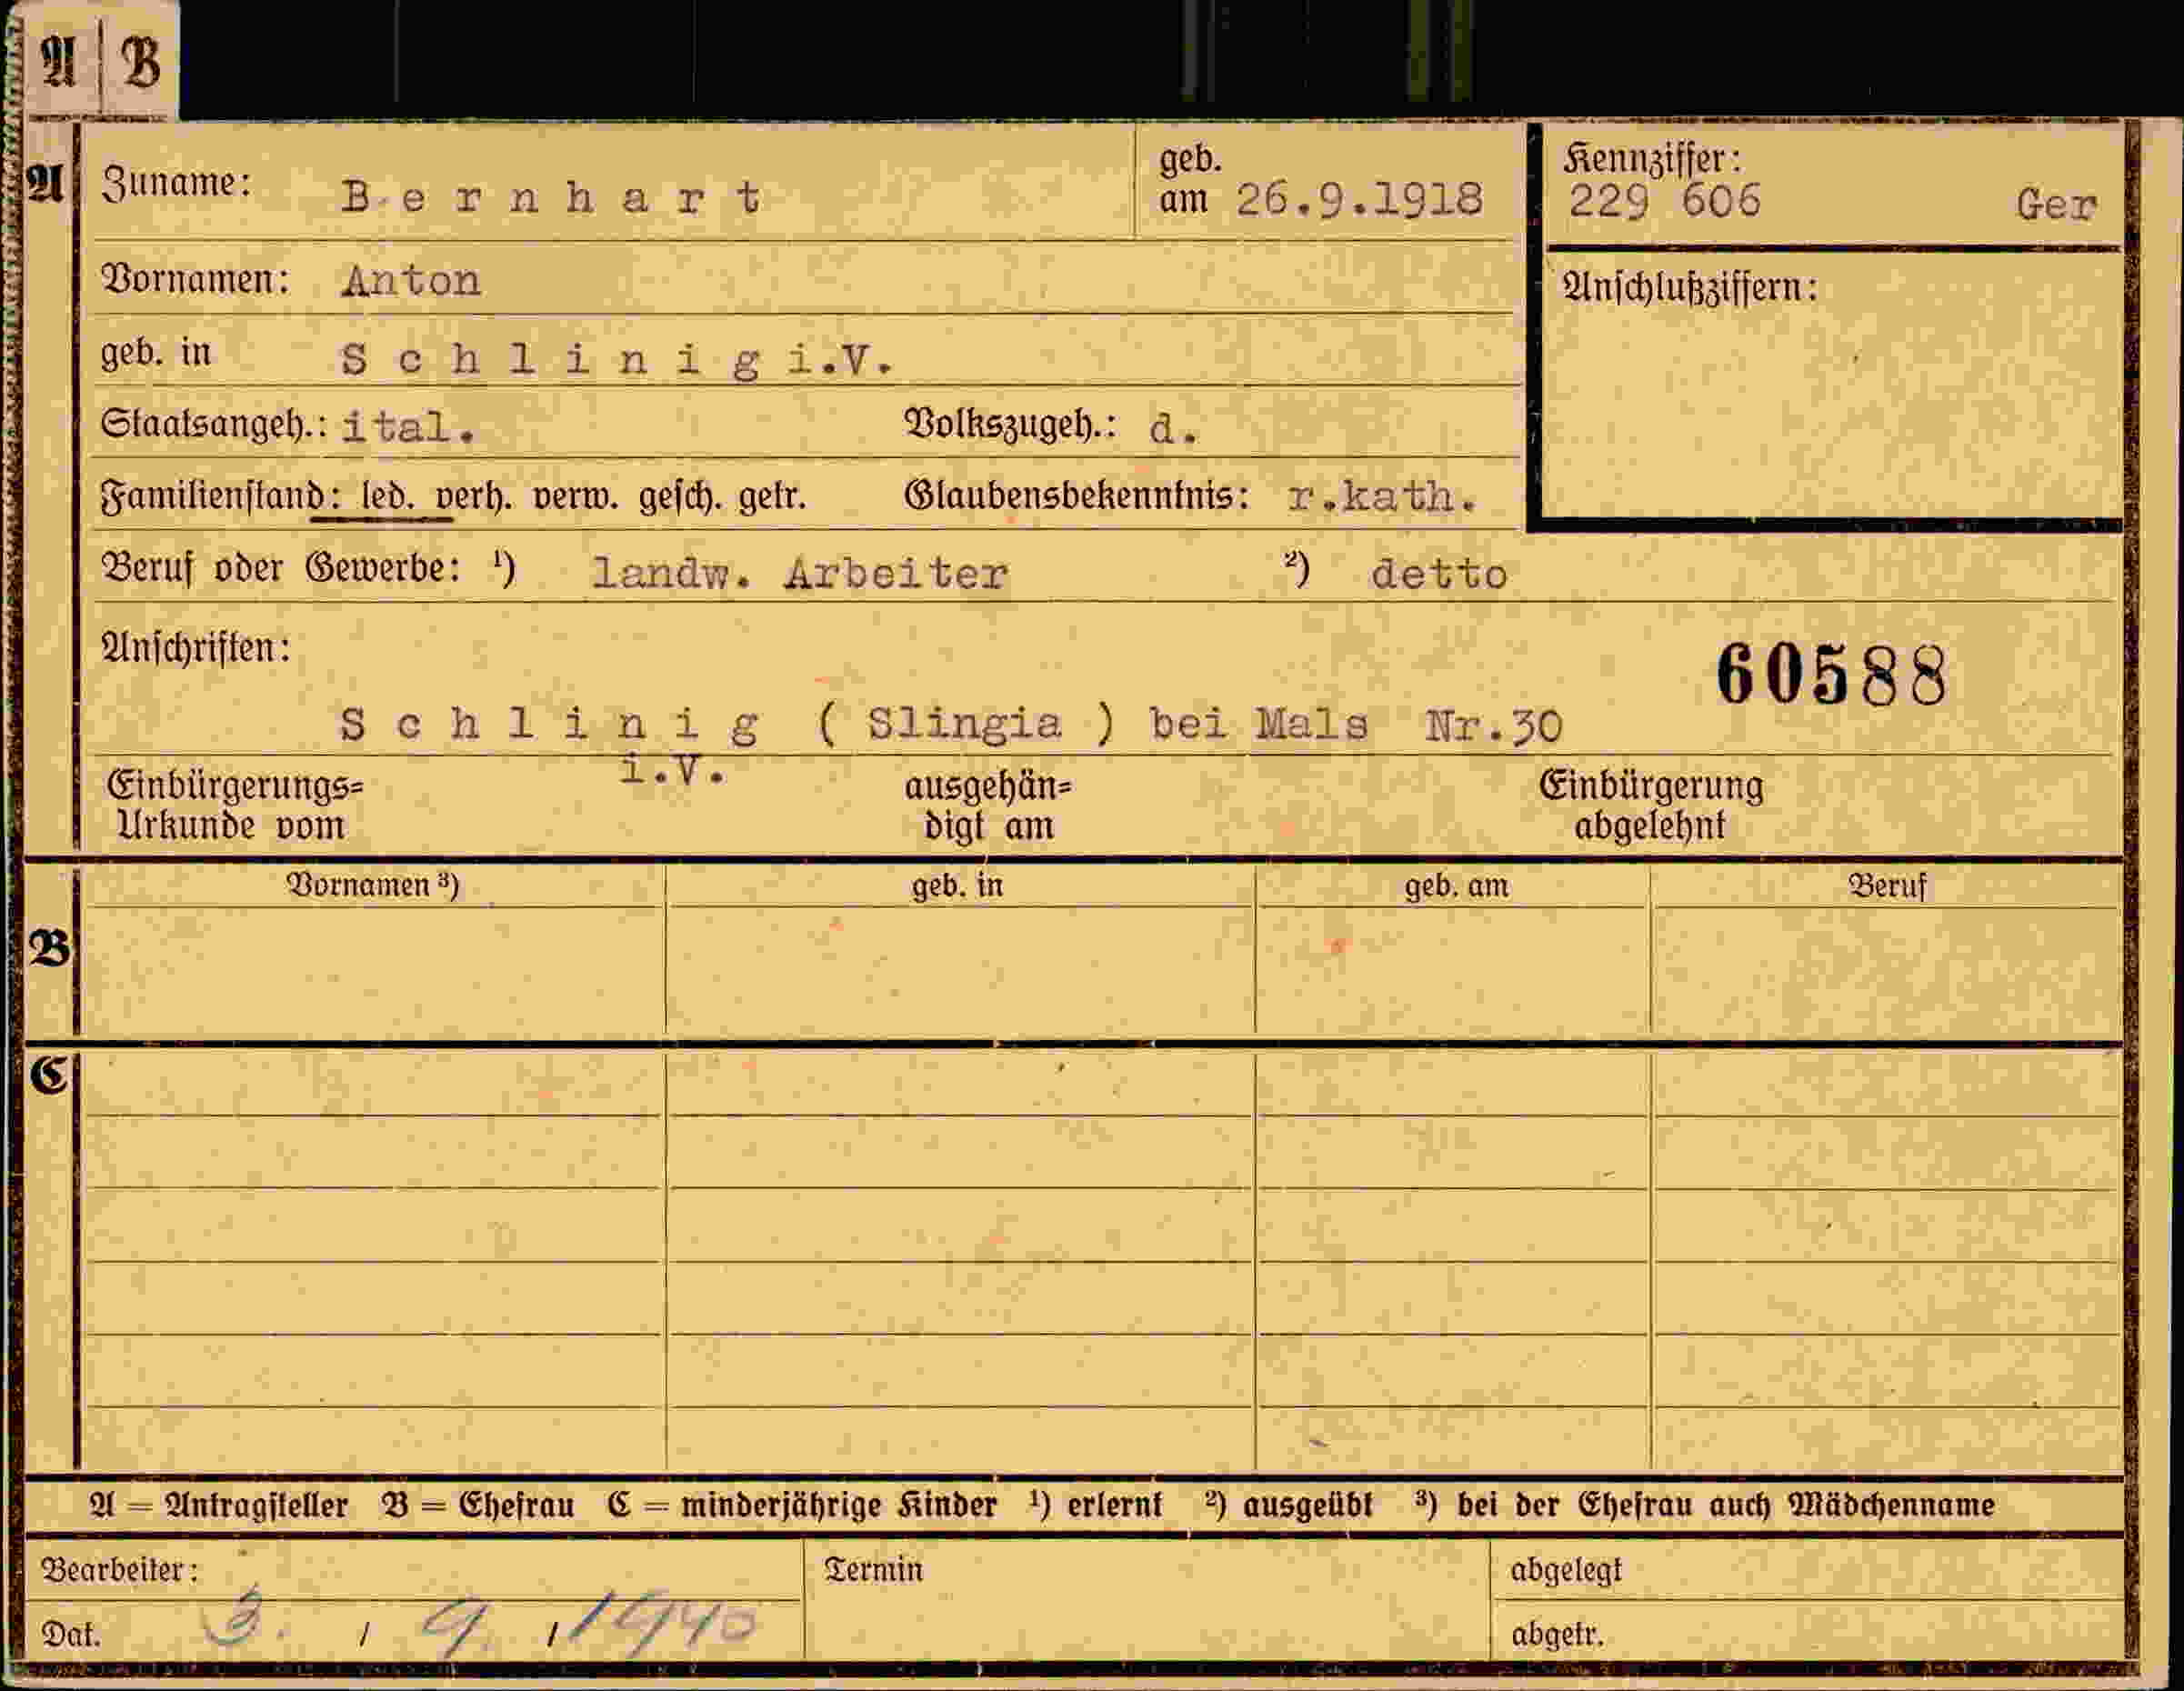 A B
A Zuname: Bernhart geb. am 26.9.1918 Kennziffer: 229 606 Ger
Vornamen: Anton Anschlußziffern:
geb. in Schlinig i.V.
Staatsangeh.: ital. Volkszugeh.: d.
Familienstand: led. verh. verw. gesch. getr. Glaubensbekenntnis: r.kath.
Beruf oder Gewerbe: ¹) landw. Arbeiter ²) detto
Anschriften: 60588
Schlinig ( Slingia ) bei Mals Nr.30
i.V.
Einbürgerungs= ausgehän= Einbürgerung
Urkunde vom digt am abgelehnt
Vornamen ³) geb. in geb. am Beruf
B
C
A = Antragsteller B = Ehefrau C = minderjährige Kinder ¹) erlernt ²) ausgeübt ³) bei der Ehefrau auch Mädchenname
Bearbeiter: Termin abgelegt
Dat. 3. / 9. / 1940 abgetr.